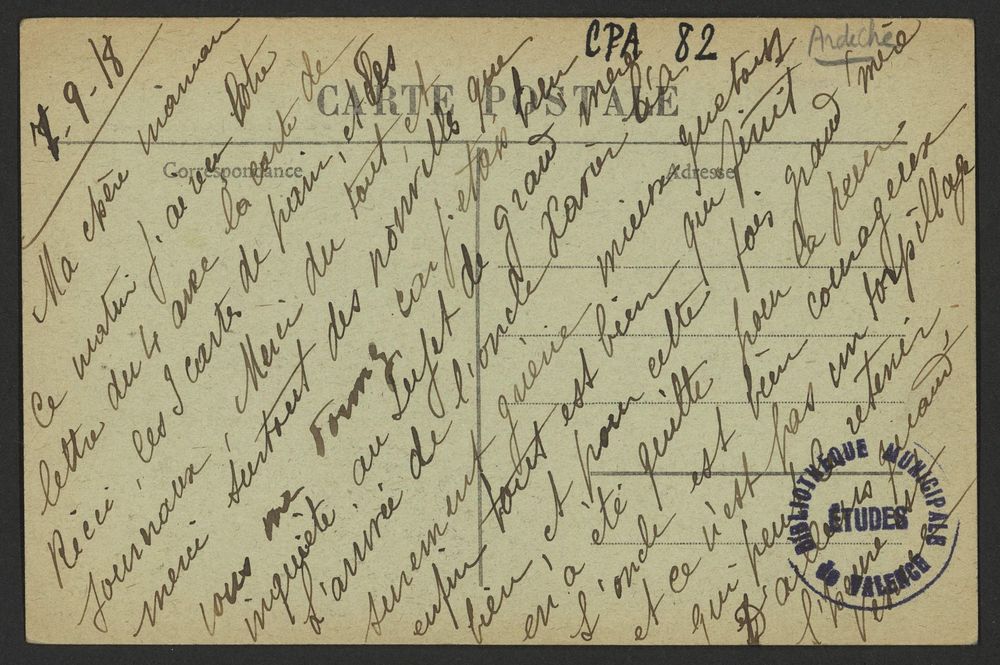 CPA 82
Ardèche
CARTE POSTALE
Correspondance
Adresse
7-9-18
Ma chère maman
Ce matin j'ai eu votre
lettre du 4 avec la carte de
Récri, les 3 cartes de parin, et les
journaux, Merci du tout et
merci surtout des nouvelles que
vous me donnez car j'étais bien
inquiète au sujet de grand mère
L'arrivée de l'oncle Xavier l'a
surement guérie mieux que tout
enfin tout est bien qui finit
bien, et pour cette fois grand'mère
en a été quitte pour la peur.
L'oncle est bien courageux
et ce n'est pas un torpillage
qui peut le retenir
D'ailleurs quand
l'heure
BIBLIOTHÈQUE MUNICIPALE
ÉTUDES
de VALENCE